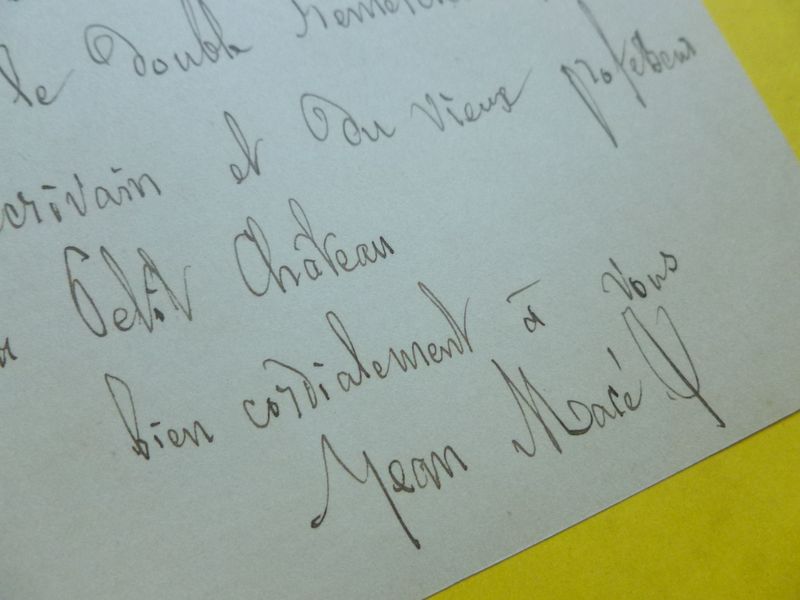 le double
écrivain et du vieux professeur
Petit Château
bien cordialement à vous
Jean Macé